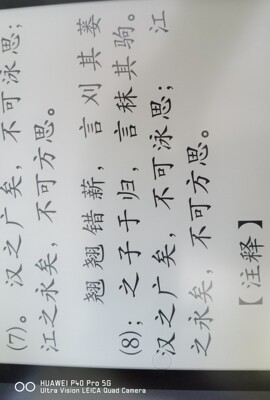 (7)。汉之广矣，不可泳思；
江之永矣，不可方思。
翘翘错薪，言刈其蒌
(8)；之子于归，言秣其驹。
汉之广矣，不可泳思；江
之永矣，不可方思。
【注释】
HUAWEI P40 Pro 5G
Ultra Vision LEICA Quad Camera